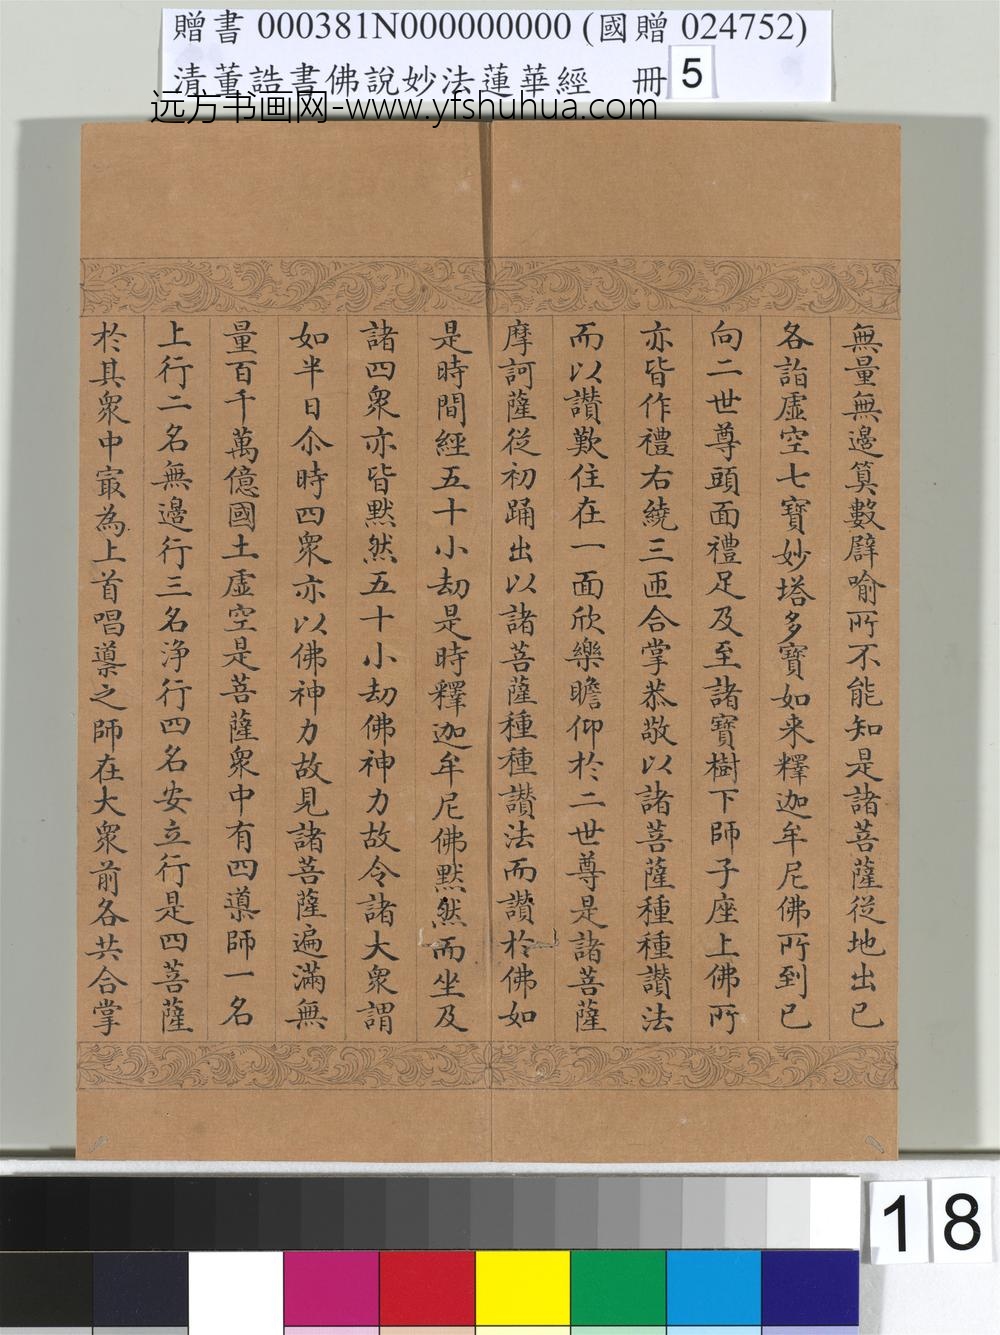 贈書 000381N000000000 (國贈 024752)
清董誥書佛說妙法蓮華經 冊 5
远方书画网-www.yfshuhua.com
無量無邊算數譬喻所不能知是諸菩薩從地出已
各詣虛空七寶妙塔多寶如来釋迦牟尼佛所到已
向二世尊頭面禮足及至諸寶樹下師子座上佛所
亦皆作禮右繞三匝合掌恭敬以諸菩薩種種讃法
而以讃歎住在一面欣樂瞻仰於二世尊是諸菩薩
摩訶薩從初踊出以諸菩薩種種讃法而讃於佛如
是時間經五十小劫是時釋迦牟尼佛默然而坐及
諸四衆亦皆默然五十小劫佛神力故令諸大衆謂
如半日尒時四衆亦以佛神力故見諸菩薩遍滿無
量百千萬億國土虛空是菩薩衆中有四導師一名
上行二名無邊行三名淨行四名安立行是四菩薩
於其衆中㝡為上首唱導之師在大衆前各共合掌
18